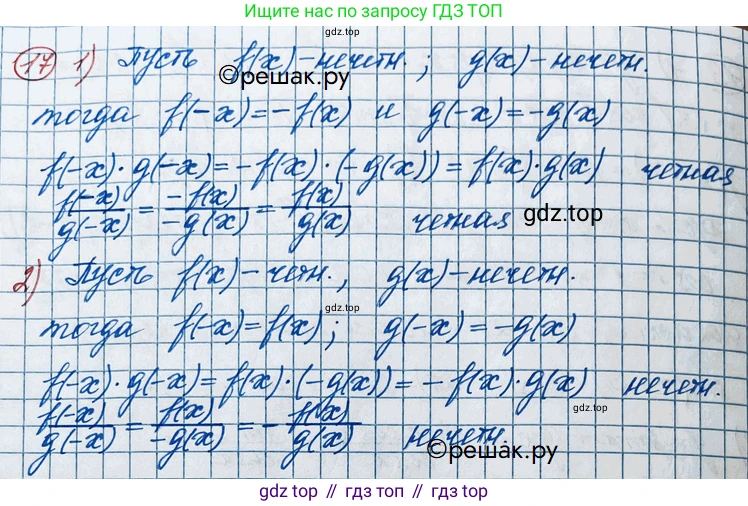 Ищите нас по запросу ГДЗ ТОП
gdz.top
17 1) Пусть f(x) – нечетн.; g(x) – нечетн.
©решак.ру
тогда f(-x) = -f(x) и g(-x) = -g(x)
f(-x)·g(-x) = -f(x)·(-g(x)) = f(x)·g(x) четная
f(-x)/g(-x) = -f(x)/-g(x) = f(x)/g(x) четная
gdz.top
2) Пусть f(x) – четн., g(x) – нечетн.
gdz.top
тогда f(-x) = f(x); g(-x) = -g(x)
f(-x)·g(-x) = f(x)·(-g(x)) = -f(x)·g(x) нечетн.
gdz.top
f(-x)/g(-x) = f(x)/-g(x) = -f(x)/g(x) нечетн.
©решак.ру
gdz.top // гдз.топ // гдз.top